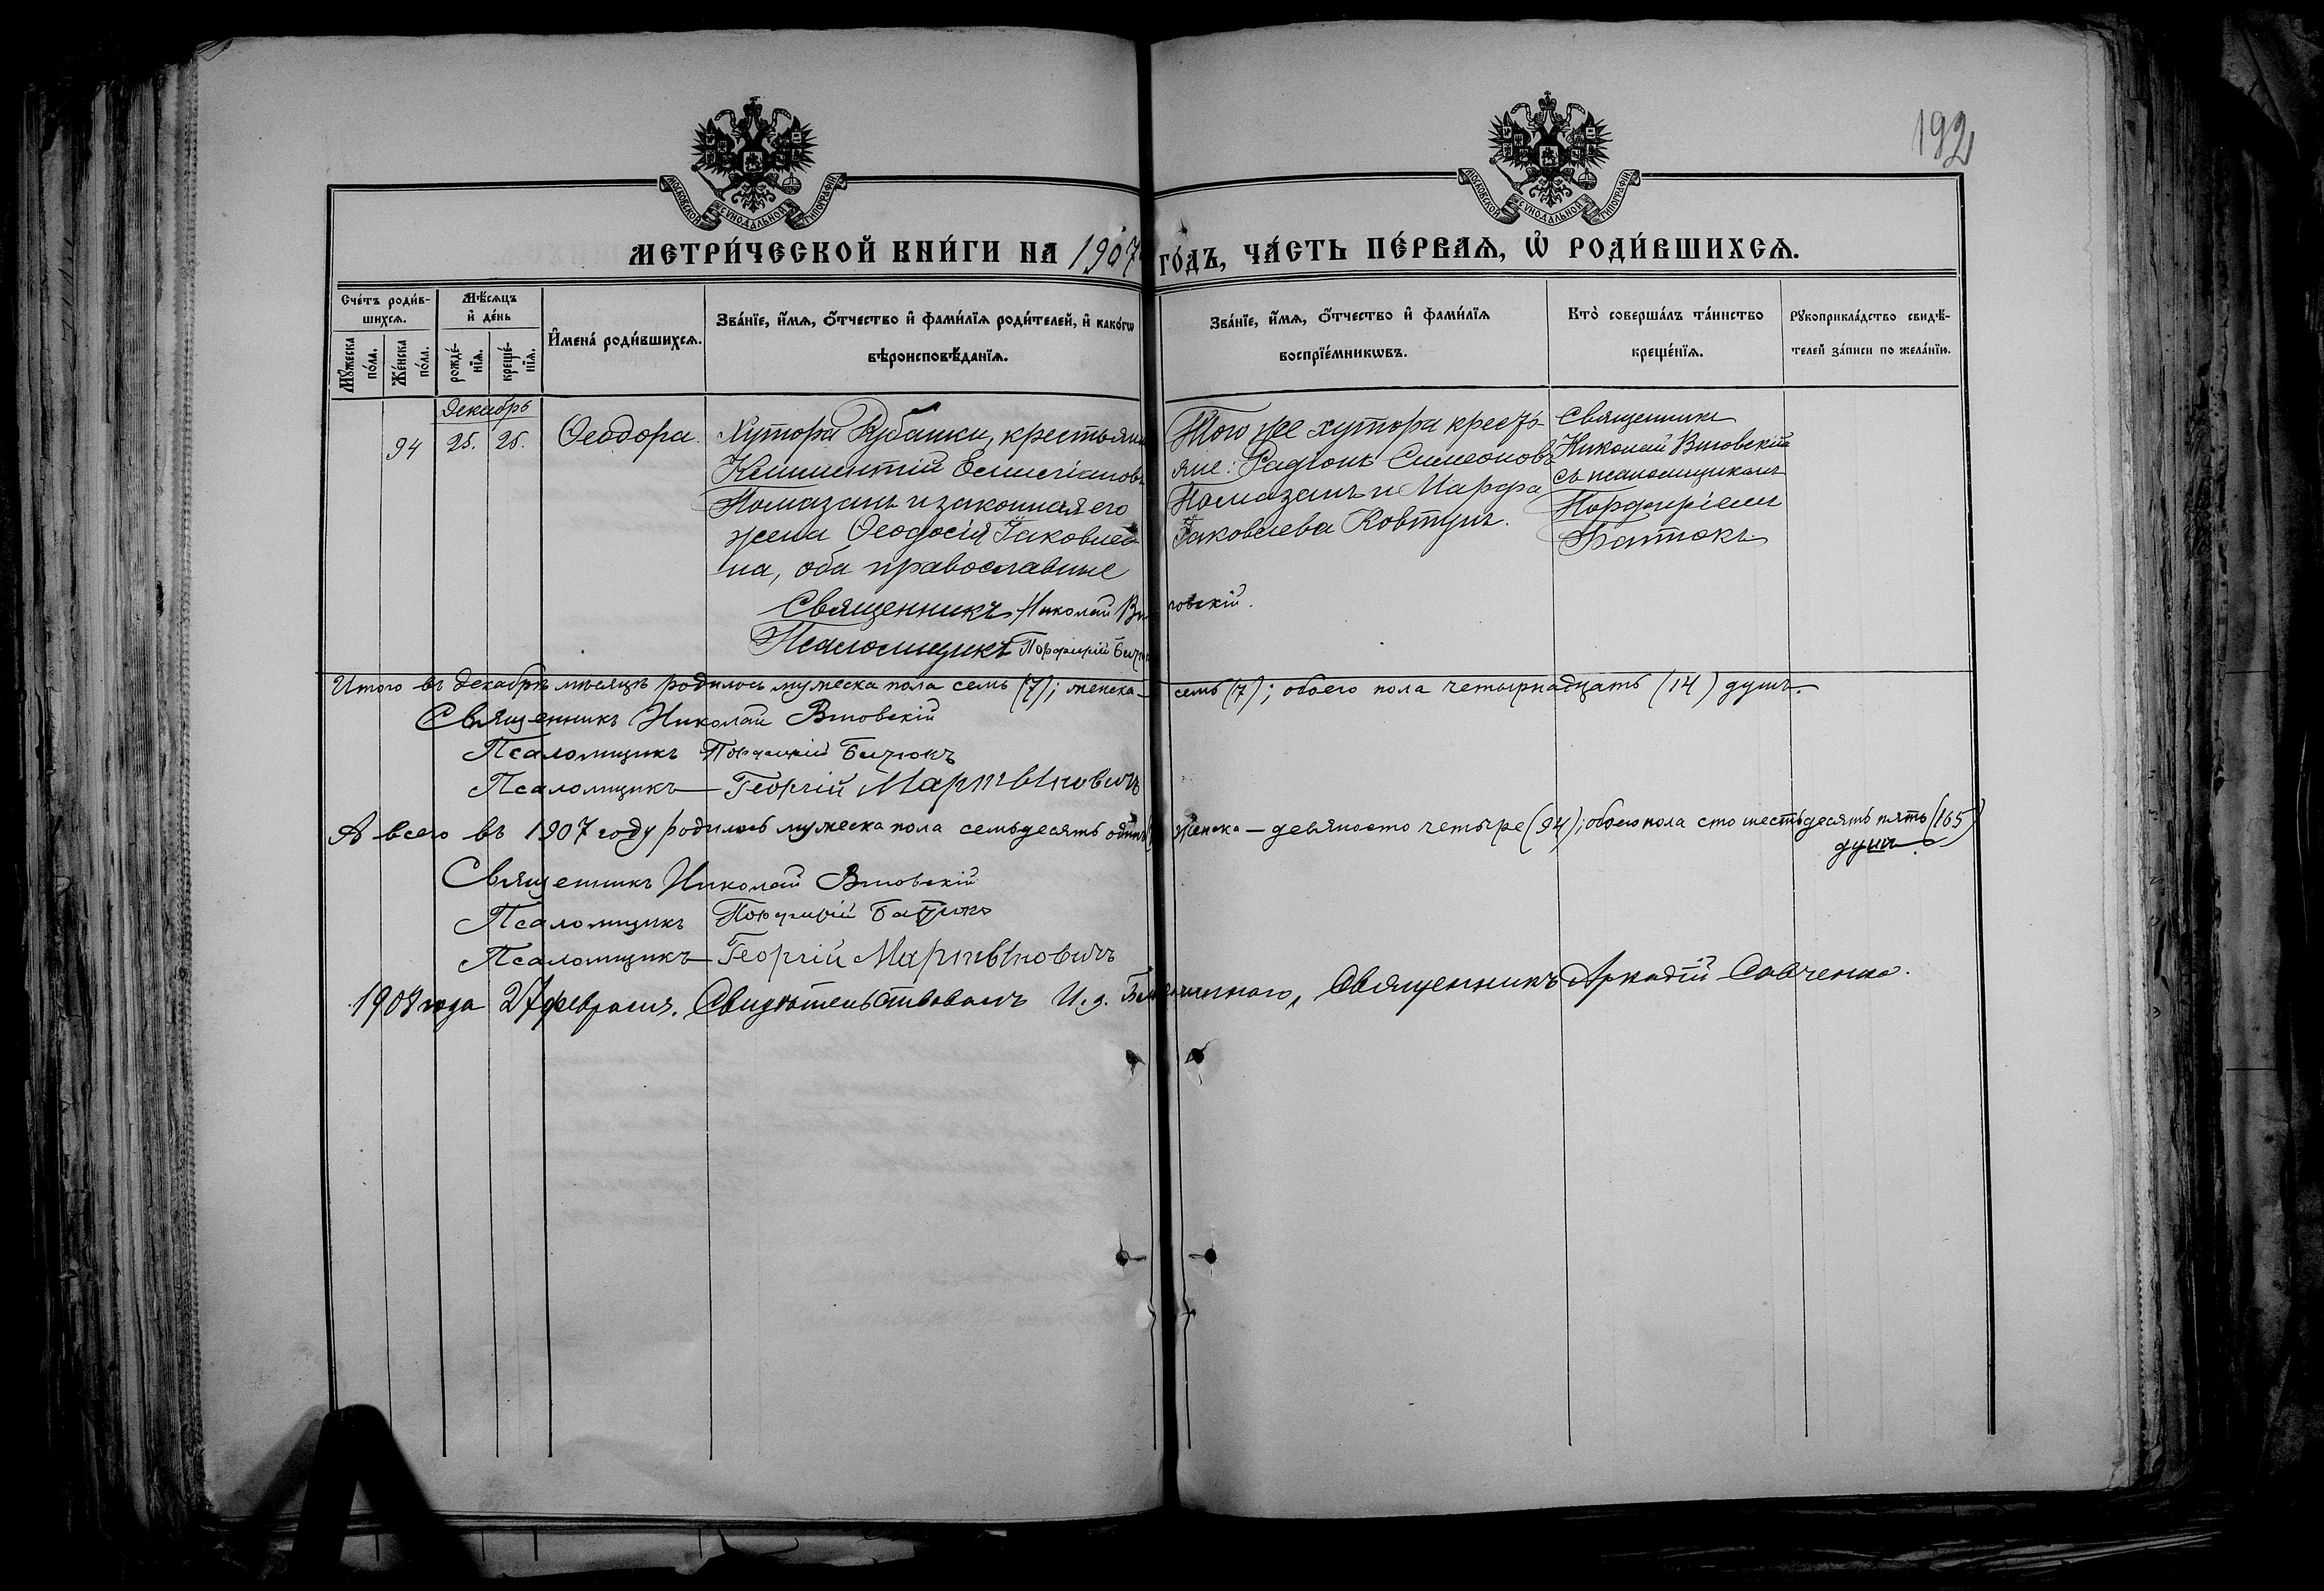 192
МОСКОВСКОЙ СѴНОДАЛЬНОЙ ТИПОГРАФІИ
МОСКОВСКОЙ СѴНОДАЛЬНОЙ ТИПОГРАФІИ
МЕТРИ́ЧЕСКОЙ КНИ́ГИ НА 1907 ГО́ДЪ, ЧА́СТЬ ПЕ́РВАѦ, Ѡ҆ РОДИ́ВШИХСѦ.
Сче́тъ роди́в-
шихсѧ.
Мꙋ́жеска по́ла.
Же́нска по́ла.
Мѣ́сѧцъ
и҆ де́нь
рожде́-нїѧ.
креще́-нїѧ.
И҆мена̀ роди́вшихсѧ.
Зва́нїе, и҆́мѧ, ѻ҆́тчество и҆ фами́лїѧ роди́телей, и҆ како́гѡ
вѣроисповѣ́данїѧ.
Зва́нїе, и҆́мѧ, ѻ҆́тчество и҆ фами́лїѧ
воспрїе́мникѡвъ.
Кто̀ соверша́лъ та́инство
креще́нїѧ.
Рꙋкоприкла́дство свидѣ́-
телей за́писи по жела́нїю.
Декабрь
94 25. 25. Ѳеодора.
Хутора Кубашки, крестьянинъ
Климентій
Помазанъ и законная его
жена Ѳеодосія Іаковлев
на, оба православные
Священникъ Николай
Псаломщикъ Порфирій
Того же хутора кресть-
яне: Радіонъ Симеоновъ
Помазанъ и Марфа
Іаковлева Ковтунъ.
Священникъ
Николай
съ псаломщикомъ
Порфиріемъ
Итого въ декабрѣ мѣсяцѣ родилось мужеска пола семь (7); женска — семь (7); обоего пола четырнадцать (14) душъ.
Священникъ Николай
Псаломщикъ Порфирій
Псаломщикъ — Георгій Мартыновичъ
А всего въ 1907 году родилось мужеска пола семьдесятъ одинъ женска — девяносто четыре (94); обоего пола сто шестьдесятъ пять (165)
душъ.
Священникъ Николай
Псаломщикъ Порфирій
Псаломщикъ — Георгій Мартыновичъ
1908 года 27 февраля. Свидѣтельствовалъ И. д. Благочиннаго, Священникъ Аркадій Савченко.